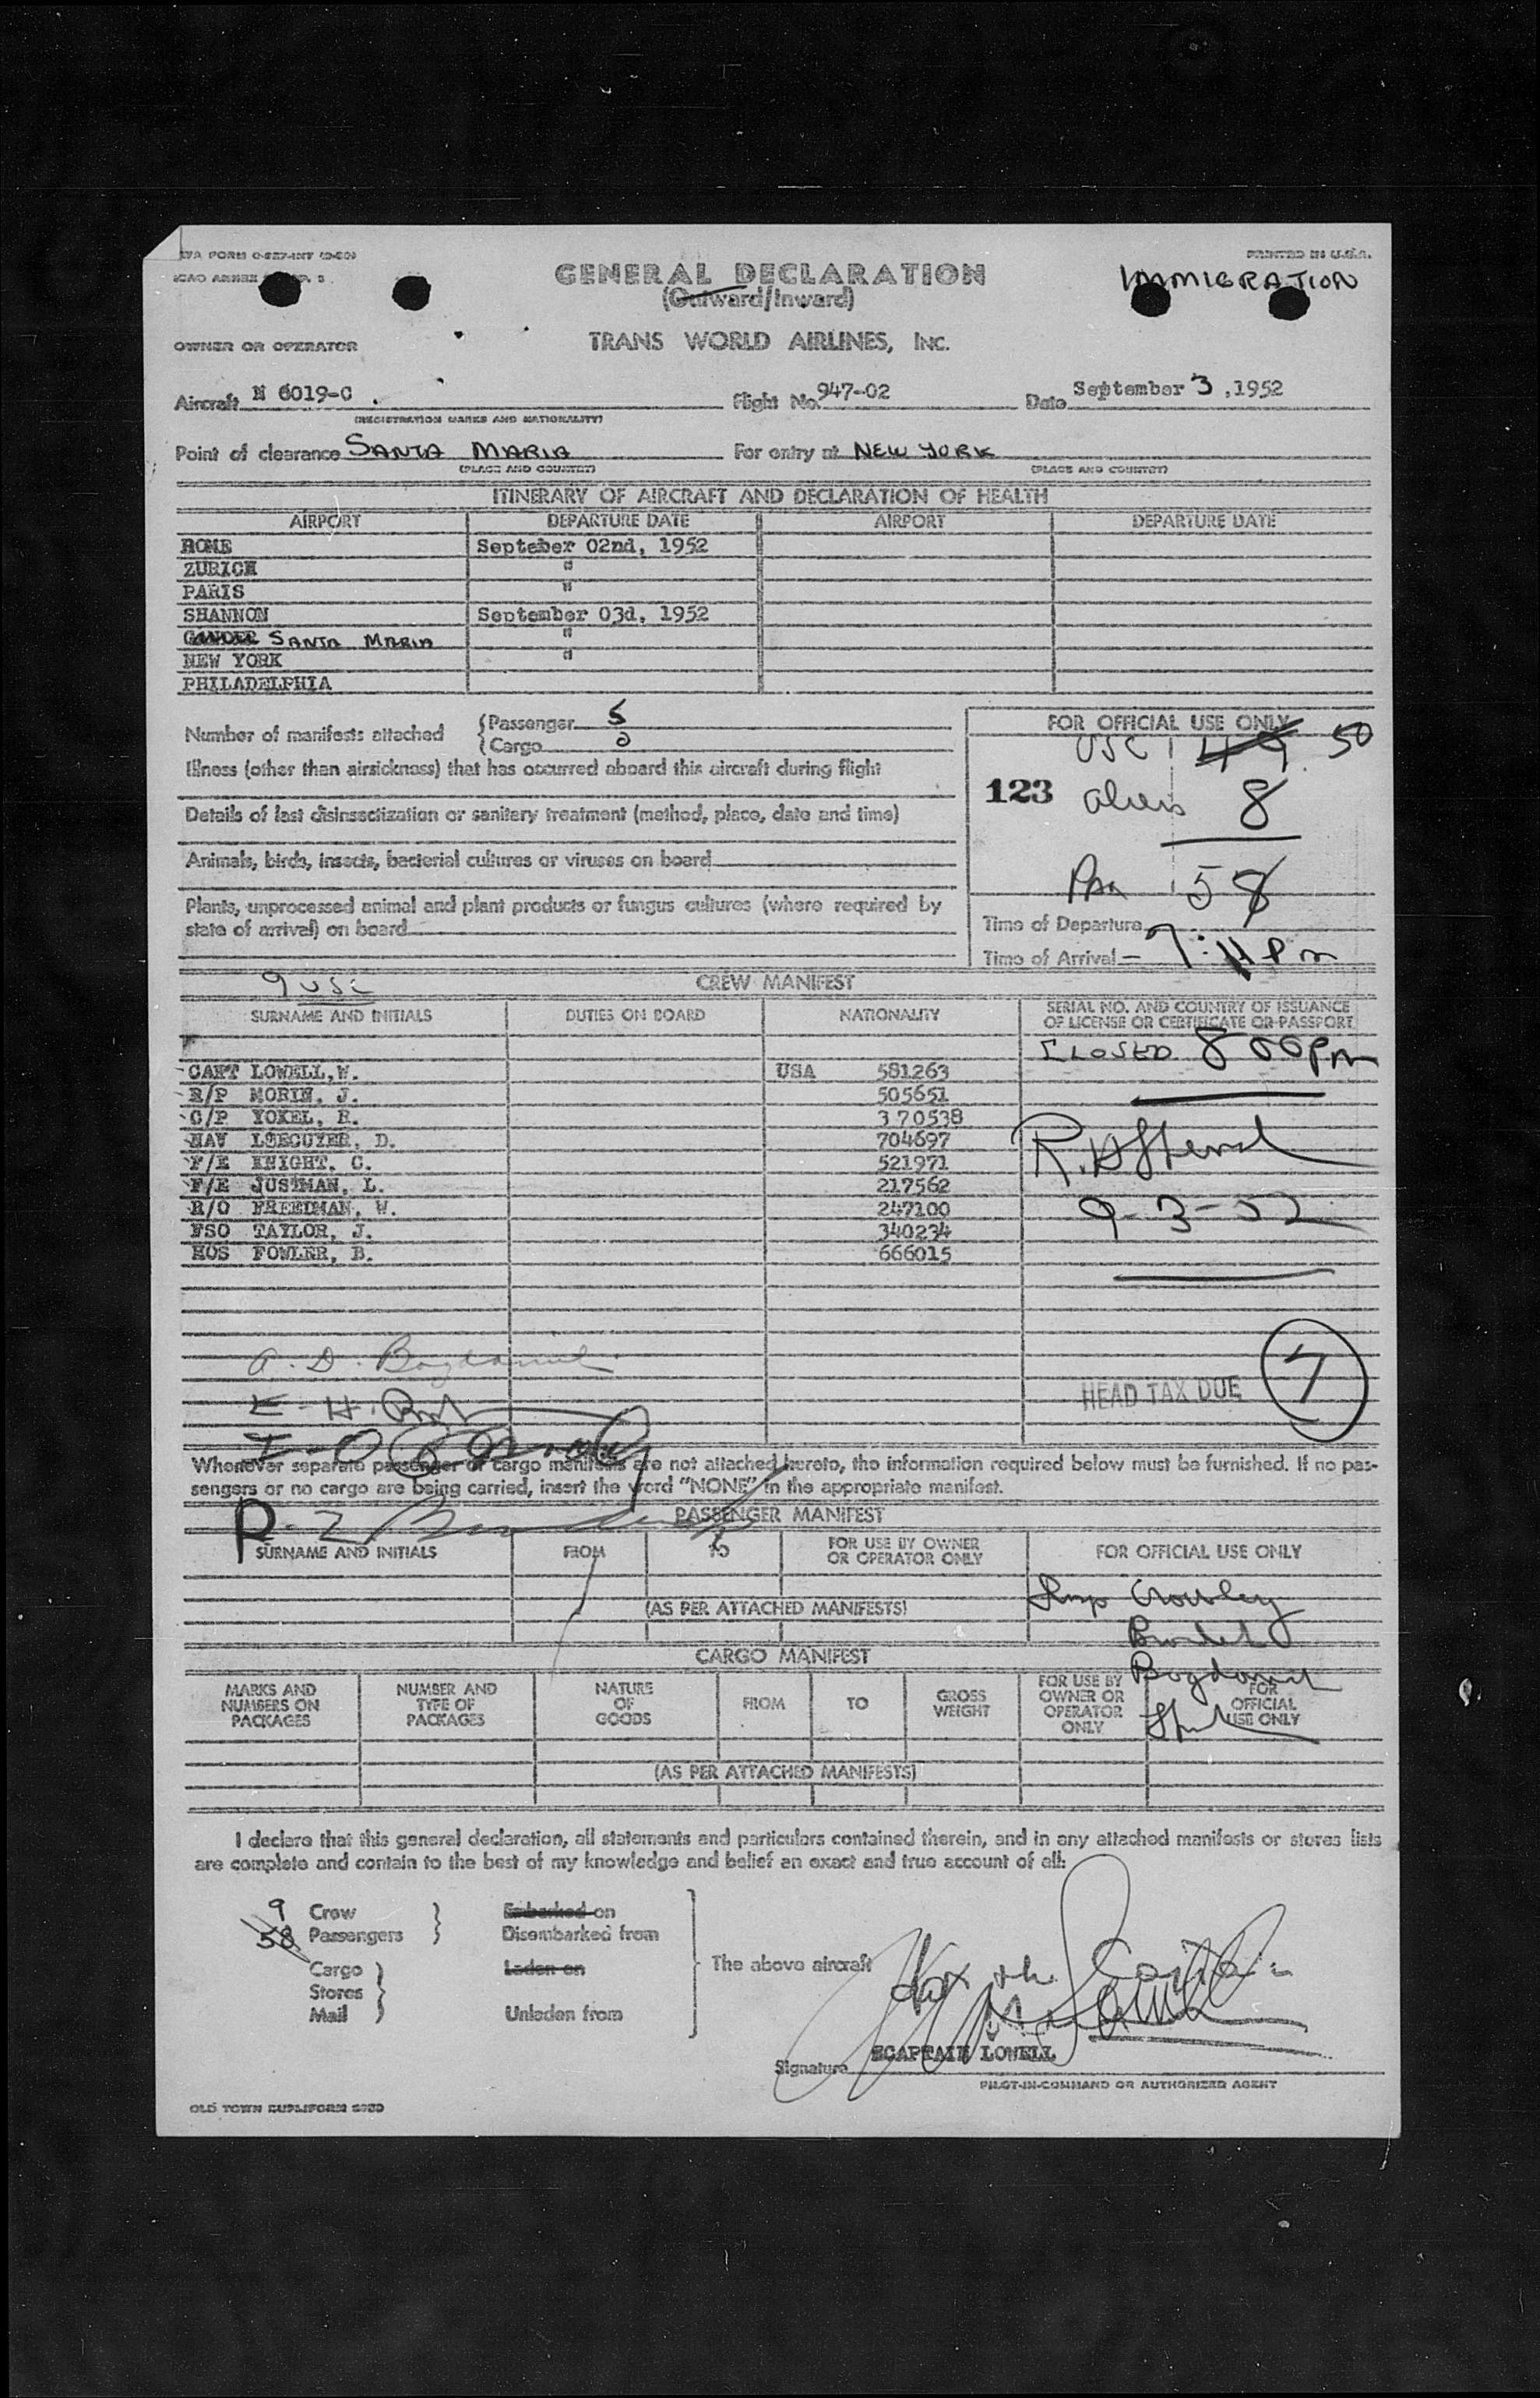 TWA FORM
PRINTED IN U.S.A.
ICAO ANNEX
GENERAL DECLARATION
IMMIGRATION
(Outward/Inward)
OWNER OR OPERATOR
TRANS WORLD AIRLINES, INC.
Aircraft N 6019-C Flight No. 947-02 Date September 3, 1952
(REGISTRATION MARKS AND NATIONALITY)
Point of clearance SANTA MARIA For entry at NEW YORK
(PLACE AND COUNTRY) (PLACE AND COUNTRY)
ITINERARY OF AIRCRAFT AND DECLARATION OF HEALTH
AIRPORT DEPARTURE DATE AIRPORT DEPARTURE DATE
ROME Septeber 02nd, 1952
ZURICH "
PARIS "
SHANNON September 03d, 1952
GANDER SANTA MARIA "
NEW YORK "
PHILADELPHIA
Number of manifests attached
Passenger 5
Cargo 0
FOR OFFICIAL USE ONLY
USC 49 50
Illness (other than airsickness) that has occurred aboard this aircraft during flight
123 aliens 8
Details of last disinsectization or sanitary treatment (method, place, date and time)
Animals, birds, insects, bacterial cultures or viruses on board
Pax 58
Plants, unprocessed animal and plant products or fungus cultures (where required by
state of arrival) on board
Time of Departure
Time of Arrival - 7:11 Pm
9 USC
CREW MANIFEST
SURNAME AND INITIALS DUTIES ON BOARD NATIONALITY SERIAL NO. AND COUNTRY OF ISSUANCE
OF LICENSE OR CERTIFICATE OR PASSPORT
CLOSED 8 00 pm
CAPT LOWELL, W. USA 581263
R/P MORIN, J. 505651
C/P YOKEL, R. 370538
NAV LSECUYER, D. 704697
F/E KNIGHT, C. 521971
F/E JUSTMAN, L. 217562
R/O FREEDMAN, W. 247100
9-3-52
FSO TAYLOR, J. 340234
HOS FOWLER, B. 666015
HEAD TAX DUE 7
Whenever separate passenger or cargo manifests are not attached hereto, the information required below must be furnished. If no pas-
sengers or no cargo are being carried, insert the word "NONE" in the appropriate manifest.
PASSENGER MANIFEST
SURNAME AND INITIALS FROM TO FOR USE BY OWNER
OR OPERATOR ONLY FOR OFFICIAL USE ONLY
Insp Crowley
(AS PER ATTACHED MANIFESTS)
CARGO MANIFEST
MARKS AND
NUMBERS ON
PACKAGES
NUMBER AND
TYPE OF
PACKAGES
NATURE
OF
GOODS
FROM
TO
GROSS
WEIGHT
FOR USE BY
OWNER OR
OPERATOR
ONLY
FOR
OFFICIAL
USE ONLY
(AS PER ATTACHED MANIFESTS)
I declare that this general declaration, all statements and particulars contained therein, and in any attached manifests or stores lists
are complete and contain to the best of my knowledge and belief an exact and true account of all:
9 Crew
58 Passengers
Embarked on
Disembarked from
Cargo
Stores
Mail
Laden on
Unladen from
The above aircraft
Signature CAPTAIN LOWELL
PILOT-IN-COMMAND OR AUTHORIZED AGENT
OLD TOWN DUPLIFORM